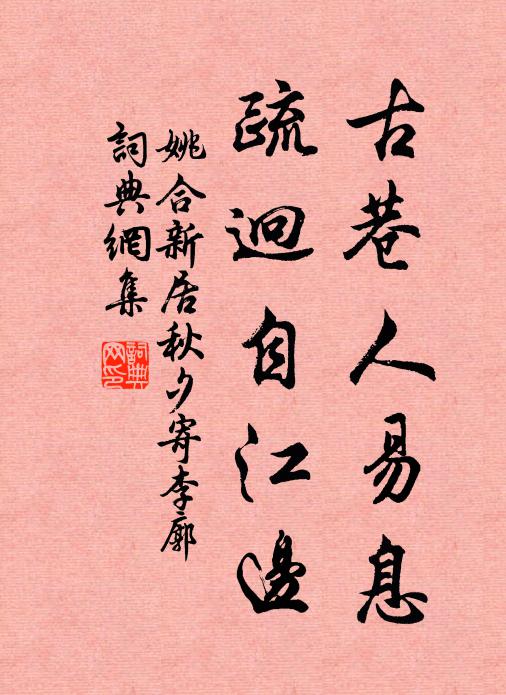 古巷人易息
疏迴自江邊
姚合新居秋夕寄李廓
詞典網集
詞典網印